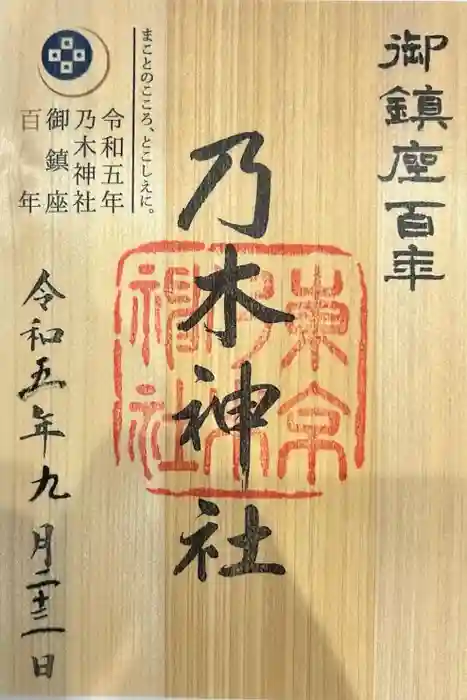 御鎮座百年
乃木神社
東京
乃木
神社
まことのこころ、とこしえに。
令和五年
乃木神社
御鎮座
百年
令和五年九月二十三日